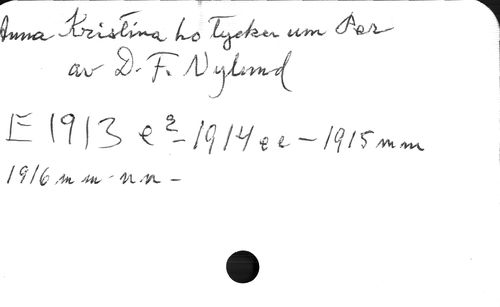 Anna Kristina ho Tycker um Per
av D. F. Nylund
E 1913 e e - 1914 e e - 1915 m m
1916 m m - n n -